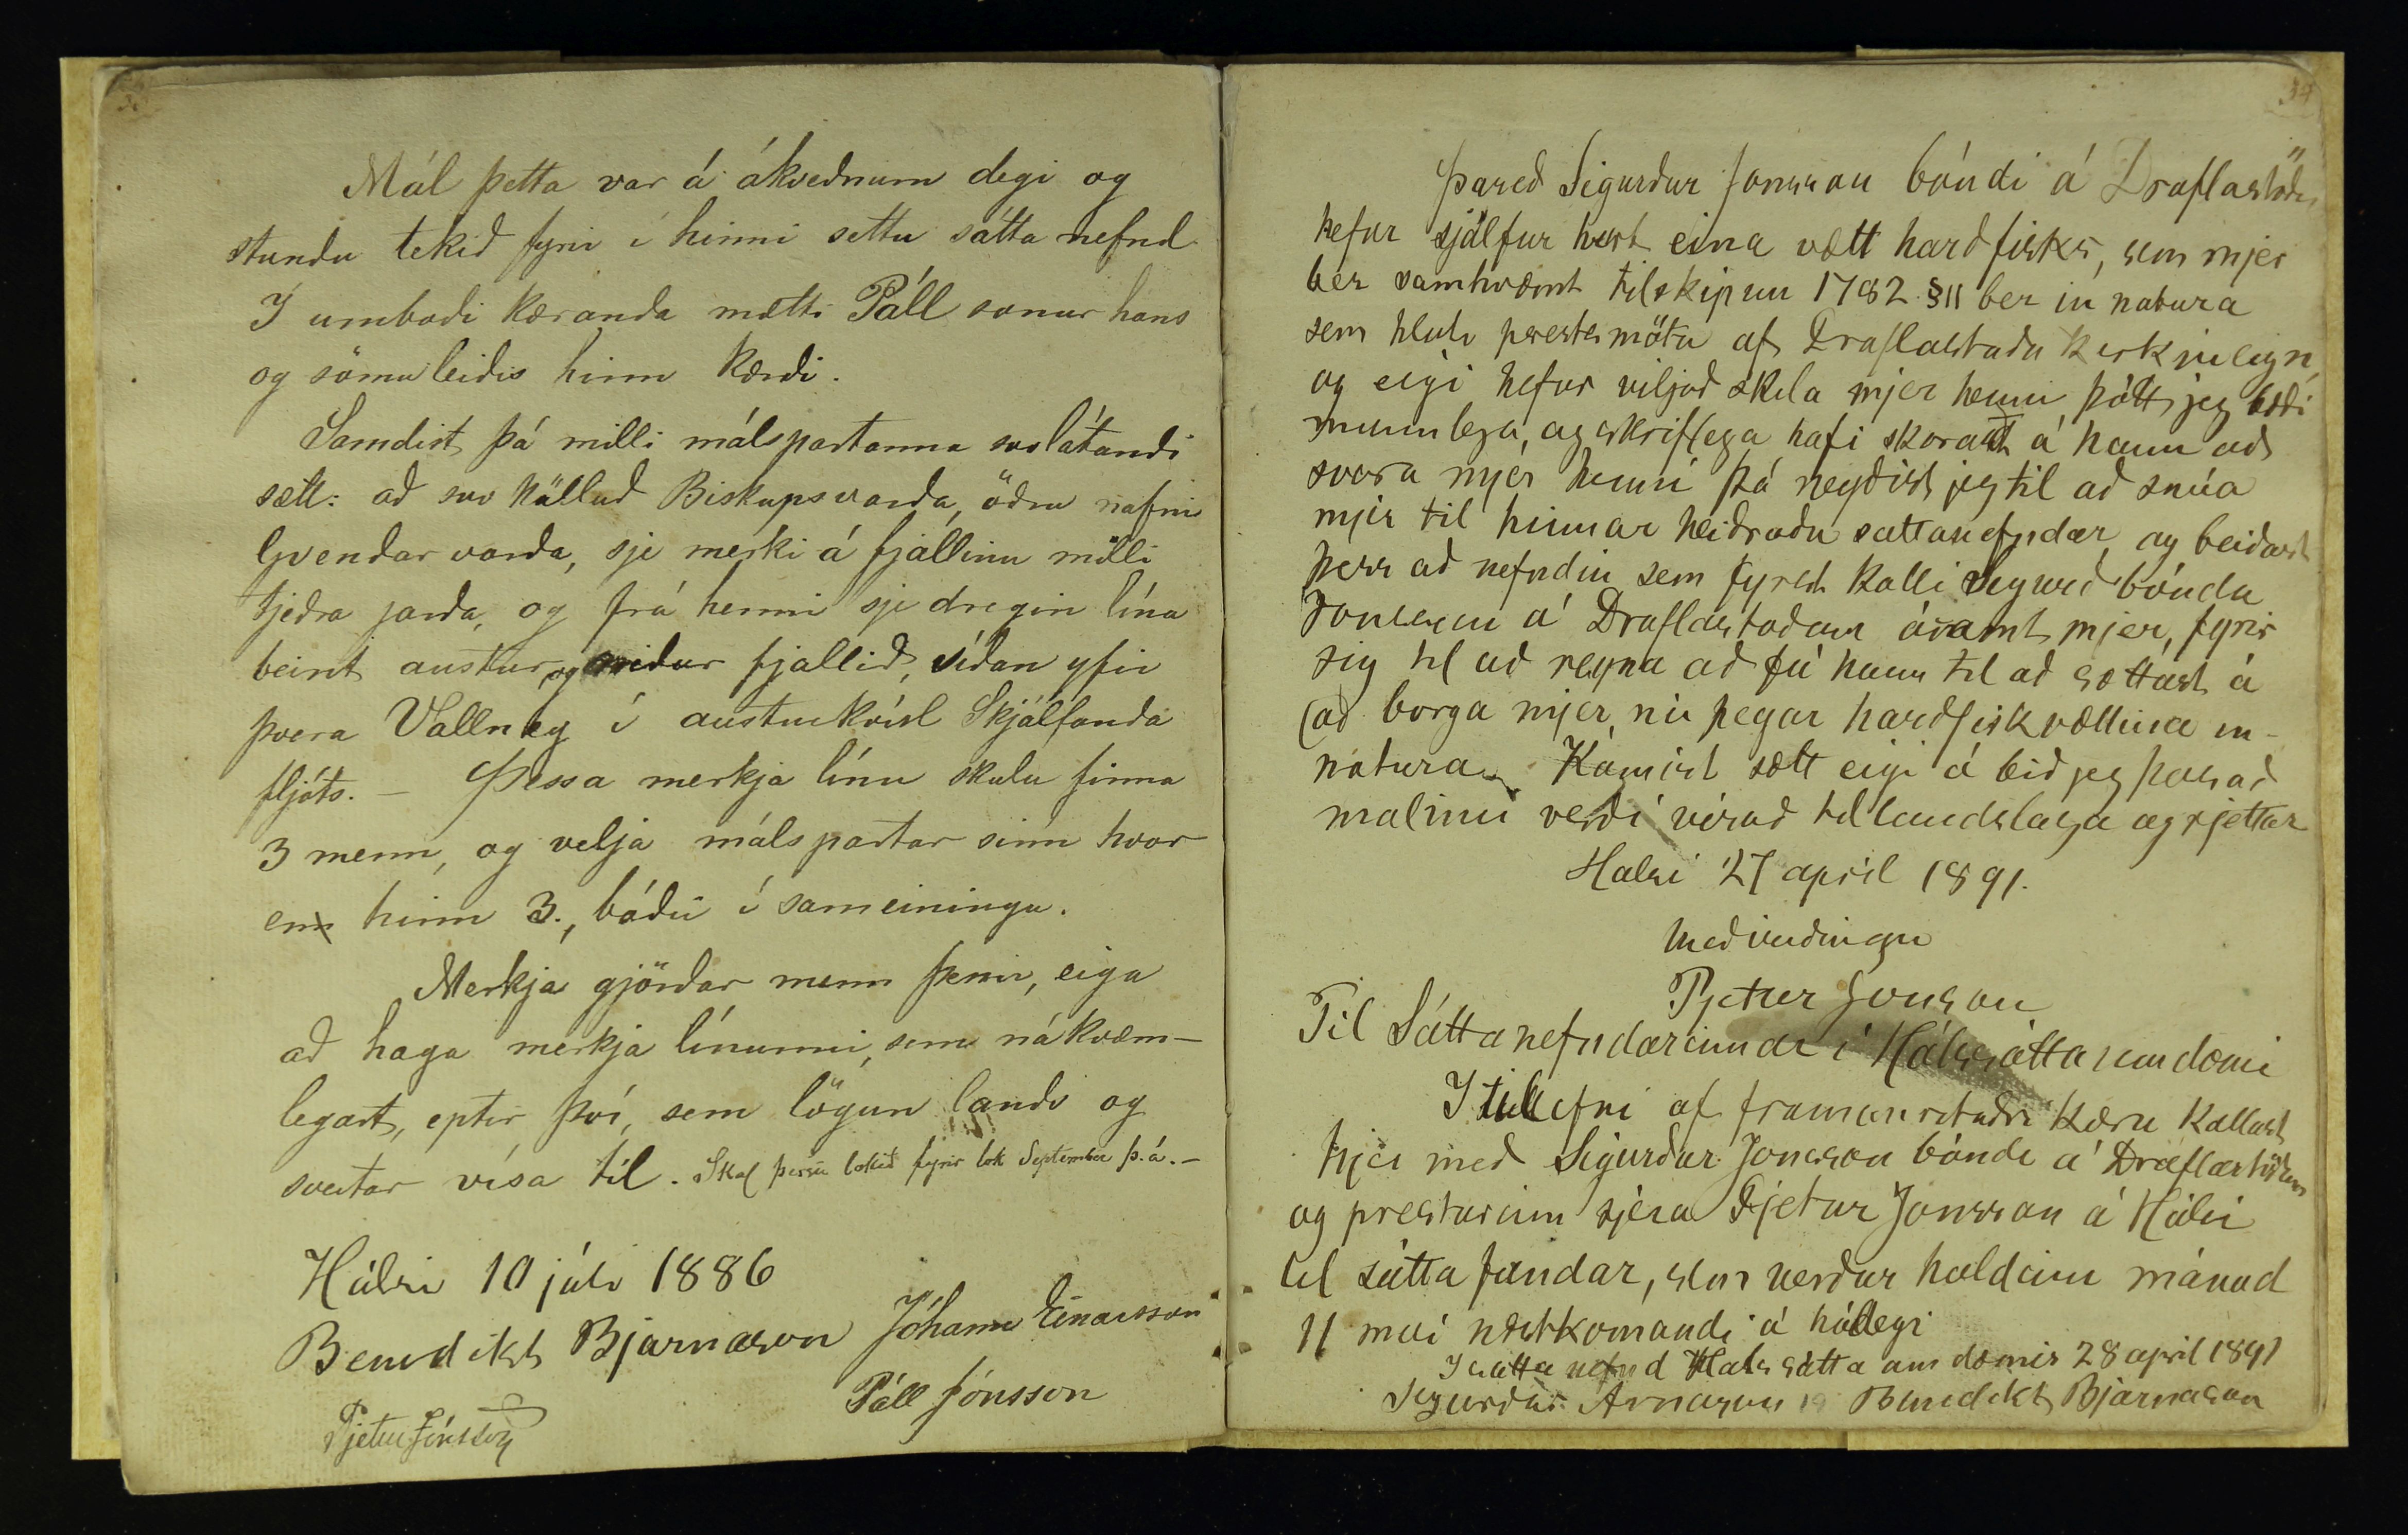 Mál þetta var á ákveðnum degi og
stundu tekið fyrir í hinni settu sátta nefnd
Í umboði kæranda mætti Páll sonur hans
og sömuleiðis hinn kærði.
Samdist þá milli málspartanna svolátandi
sætt: að svo kölluð Biskupsvarða, öðru nafni
Gvendar varða, sje merki á fjallinu milli
tjeðra jarða, og frá henni sje dregin lína
beint austur og niður fjallið, síðan yfir
þvera Vallney í austurkvísl Skjálfanda
fljóts. – Þessa merkja línu skulu finna
3 menn, og velja málspartar sinn hvor
en hinn 3., báðir í sameiningu.
Merkja gjörðar menn þessir, eiga
að haga merkja línunni, sem nákvæm-
legast, eptir því, sem lögun lands og
sveitar vísa til. Skal þessu lokið fyrir lok September þ.á. –
Hálsi 10 júlí 1886
Benedikt Bjarnason Jóhann Einarsson
Páll Jónsson
Pjetur Jónsson
34
Þareð Sigurður Jonsson bóndi á Draflastöðum
hefur sjálfur eina vætt harðfisks, sem mjer
ber samkvæmt tilskipun 1782 §11 ber in natura
sem hluti prestsmötu af Draflastaða kirkjueign,
og eigi hefur viljað skila mjer henni þótt jeg bæði
munnlega, og skriflega hafi skorað á hann að
svara mjer henni þá neyðist jeg til að snúa
mjer til hinnar heiðruðu sattanefndar, og beiðast
þess að nefndin sem fyrst kalli Sigurð bónda
Jonsson á Draflastöðum ásamt mjer, fyrir
sig til að reyna að fá hann til að sættast á
að borga mjer nú þegar harðfiskvættina in-
natura. Komist sætt eigi á bið jeg þess að
malinu verði vísað til landslaga og rjettar
Halsi 27 april 1891.
Með virðingu
Pjetur Jonsson
Til Sáttanefndarinnar í Hálssáttaumdæmi
I tilefni af framanritaðri kæru kallast
hjer með Sigurður Jonsson bóndi á Draflastöðum
og presturinn sjera Pjetur Jonsson á Hálsi
til sátta fundar, sem verður haldinn mánud
11 mai næstkomandi á hádegi
I sáttanefnd Hals sátta umdæmis 28 april 1891
Sigurður Arnason Benedikt Bjarnason